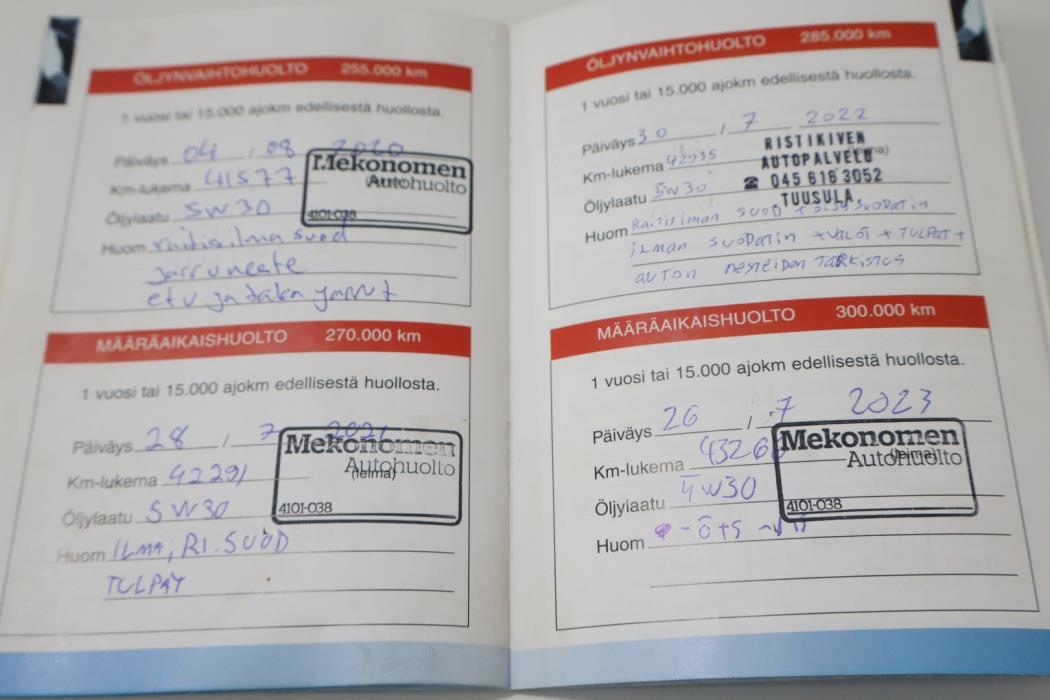 ÖLJYNVAIHTOHUOLTO 255.000 km
1 vuosi tai 15.000 ajokm edellisestä huollosta.
Päiväys 04 / 08 2020
Km-lukema 41577
Öljylaatu 5W30
Huom raitisilma suod
jarruneste
etu ja taka jarrut
Mekonomen
Autohuolto
4101-038
MÄÄRÄAIKAISHUOLTO 270.000 km
1 vuosi tai 15.000 ajokm edellisestä huollosta.
Päiväys 28 / 7 2021
Km-lukema 42291
Öljylaatu 5W30
Huom ILMA, RI. SUOD
TULPAT
Mekonomen
Autohuolto
(leima)
4101-038
ÖLJYNVAIHTOHUOLTO 285.000 km
1 vuosi tai 15.000 ajokm edellisestä huollosta.
Päiväys 30 / 7 2022
Km-lukema 42935
Öljylaatu 5W30
Huom Raitisilman SUOD + öljysuodatin
ilman SUODATIN + VALOT + TULPAT +
auton nesteiden TARKISTUS
RISTIKIVEN
AUTOPALVELU
☎ 045 616 3052
TUUSULA
MÄÄRÄAIKAISHUOLTO 300.000 km
1 vuosi tai 15.000 ajokm edellisestä huollosta.
Päiväys 26 / 7 2023
Km-lukema 43268
Öljylaatu 5W30
Huom
Mekonomen
Autohuolto
(leima)
4101-038